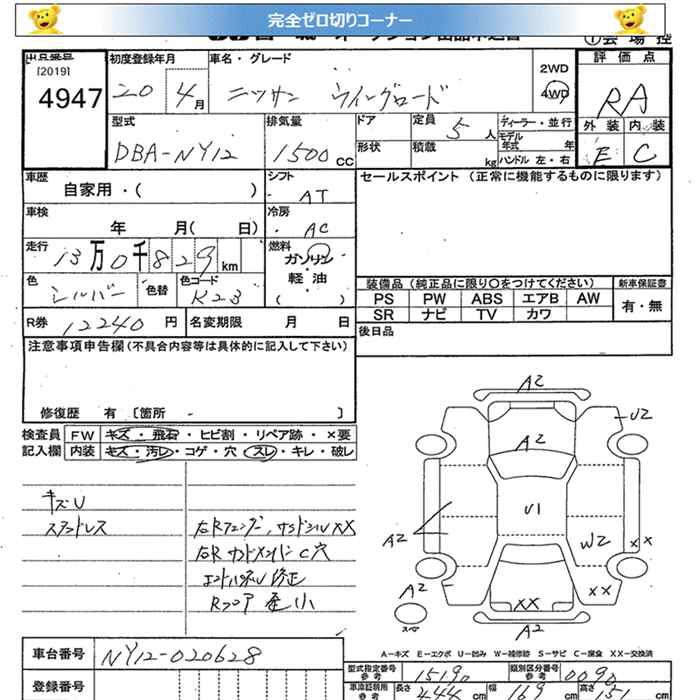 完全ゼロ切りコーナー
出品番号 [2019] 4947
初度登録年月 20 4月
車名・グレード ニッサン ウイングロード
2WD
4WD
評価点 RA
外装 内装
E C
型式 DBA-NY12
排気量 1500cc
ドア
形状
定員 5人
積載 kg
ディーラー・並行
モデル年式 年
ハンドル 左・右
車歴 自家用・( )
シフト AT
セールスポイント(正常に機能するものに限ります)
車検 年 月( 日)
冷房 AC
走行 13万0千829km
燃料 ガソリン・軽油( )
色 シルバー 色替 色コード K23
装備品(純正品に限り○をつけてください)
新車保証書 有・無
PS PW ABS エアB AW
SR ナビ TV カワ
R券 12240円
名変期限 月 日
後日品
注意事項申告欄(不具合内容等は具体的に記入して下さい)
修復歴 有 〔箇所 - 〕
検査員記入欄
FW キズ・飛石・ヒビ割・リペア跡・×要
内装 キズ・汚レ・コゲ・穴・スレ・キレ・破レ
キズU
ステアスレ
右Rフェンダー,サイドシルXX
右Rサイドメンバー C穴
エンドパネル 修正
Rフロア 歪小
A2
U2
A2
U1
A2
W2
XX
A2
XX
XX
スペア
A2
A-キズ E-エクボ U-凹み W-補修跡 S-サビ C-腐食 XX-交換済
車台番号 NY12-020628
登録番号
型式指定番号参考 15190
類別区分番号参考 0090
車検証期用参考 長さ 444cm 幅 169cm 高さ 151cm